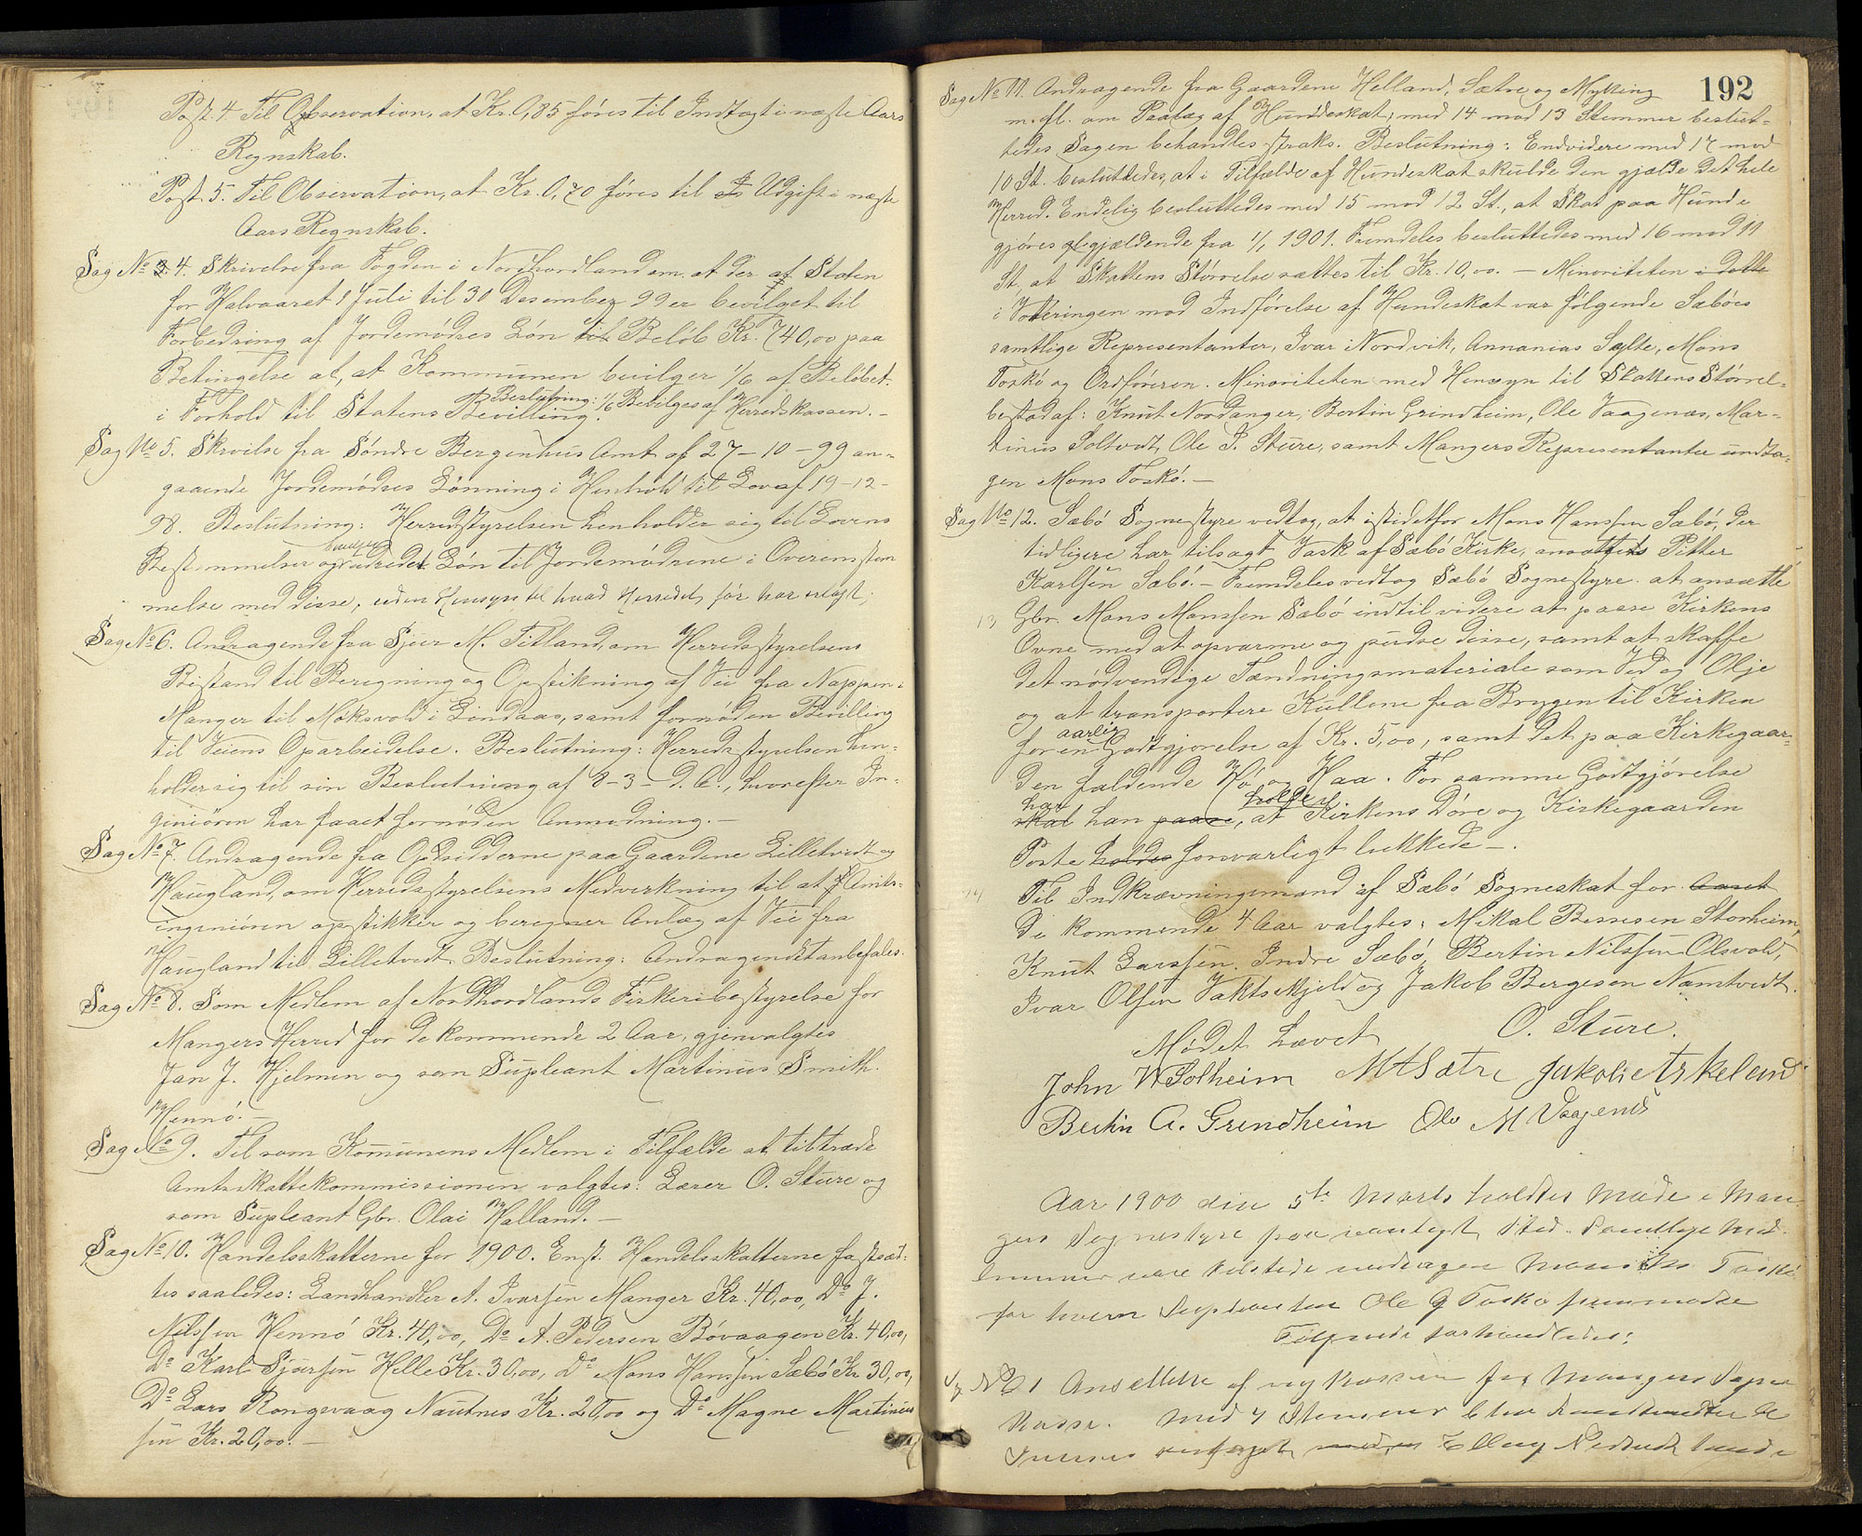 Post. 4 Til Observation, at Kr. 0,85 föres til Indtægt i næste Aars
Regnskab.
Post. 5. Til Observation, at Kr. 0,70 föres til Udgift i næste
Aars Regnskab.
Sag No 4. Skrivelse fra Fogden i Nordhordland om, at der af Staten
for Halvaaret 1 Juli til 31 Desember 99 er bevilget til
Forbedring af Jordemödres Lön til Belöb Kr. 740,00 paa
Betingelse at, at Kommunen bevilger 1/6 af Belöbet.
i Forhold til Statens Bevilling. Beslutning: 1/6 Bevilges af Herredskassen. -
Sag No 5. Skrivelse fra Söndre Bergenhus Amt af 27-10-99 an-
gaaende Jordemödres Lönning i Henhold til Lov af 19-12-
98. Beslutning: Herredsstyrelsen henholder sig til Lovens
Bestemmelser og bevilger Lön til Jordemödrene i Overensstem
melse med disse, uden Hensyn til hvad Herredet för har erlagt;
Sag No 6. Andragende fra Sjur M. Titland, om Herredsstyrelsens
Bistand til Beregning og Opstikning af Vei fra Nappen i
Manger til Möksvold i Lindaas, samt fornöden Bevilling
til Veiens Oparbeidelse. Beslutning: Herredsstyrelsen hen-
holder sig til sin Beslutning af 8-3- d. A., hvorefter In-
geniören har faaet fornöden Anmodning. -
Sag No 7. Andragende fra Opsidderne paa Gaardene Lilletvedt og
Haugland, om Herredsstyrelsens Medvirkning til at Amts-
ingeniören opstikker og beregner Anlæg af Vei fra
Haugland til Lilletvedt. Beslutning: Andragendet anbefales.
Sag No 8. Som Medlem af Nordhordlands Fiskeribestyrelse for
Mangers Herred for de kommende 2 Aar, gjenvalgtes
Jan J. Hjelmen og som Supleant Martinus Smith.
Hennö. -
Sag No 9. Til som Kommunens Medlem i Tilfælde at tiltræde
Amtsskattekommissionen valgtes: Lærer O. Sture og
som Supleant Gbr. Olai Halland. -
Sag No 10. Handelsskatterne for 1900. Enst. Handelsskatterne fastsæt-
tes saaledes: Landhandler A. Ivarsen Manger Kr. 40,00, Do J.
Nilsen Hennö Kr. 40,00, Do A. Pedersen Bövaagen Kr. 40,00,
Do Karl Sjursen Helle Kr. 30,00, Do Mons Hanssen Sæbö Kr 30,00,
Do Lars Rongevaag Nautnes Kr. 20,00 og Do Magne Martinus
sen Kr. 20,00. -
192
Sag No 11. Andragende fra Gaardene Helland, Sætre og Mykking
m. fl. om Paalæg af Hundeskat, med 14 mod 13 Stemmer beslut-
tedes Sagen behandles straks. Beslutning: Endvidere med 17 mod
10 St. besluttedes, at i Tilfælde af Hundeskat skulde den gjælde det hele
Herred. Endelig besluttedes med 15 mod 12 St., at Skat paa Hunde
gjöres gjældende fra 1/1 1901. Fremdeles besluttedes med 16 mod 11
St. at Skattens Störrelse sættes til Kr. 10,00. - Minoriteten i dette
i Voteringen mod Indförelse af Hundeskat var fölgende Sæbös
samtlige Representanter, Ivar Nordvik, Annanias Sylte, Mons
Toskö og Ordföreren. Minoriteten med Hensyn til Skattens Störrel-
bestod af: Knut Nordanger, Bertin Grindheim, Ole Vaagenæs, Mar-
tinus Soltvedt, Ole J. Sture, samt Mangers Representanter undta-
gen Mons Toskö. -
Sag No 12. Sæbö Sognestyre vedtog, at istedetfor Mons Hanssen Sæbö, der
tidligere har tilsagt Vask af Sæbö Kirke, ansættes Pitter
Karlsen Sæbö. - Fremdeles vedtog Sæbö Sognestyre at ansætte
13 Gbr. Mons Monssen Sæbö indtil videre at passe Kirkens
Ovne med at opvarme og pudse disse, samt at skaffe
det nödvendige Tændningsmateriale som Ved og Olje
og at transportere Kullene fra Bryggen til Kirken
for en aarlig Godtgjörelse af Kr. 5,00, samt det paa Kirkegaar-
den faldende Hö og Haa. For samme Godtgjörelse
skal har han passe, at holde Kirkens Döre og Kirkegaarden
Porte holdes forsvarligt lukkede -.
14 Til Indkrævningsmænd af Sæbö Sogneskat for Aaret
de kommende 4 Aar valgtes: Mikal Bessesen Storheim,
Knut Larssen Indre Sæbö, Bertin Nilssen Olsvold,
Ivar Olsen Vaktskjold og Jakob Bergesen Namtvedt.
Mödet hævet O. Sture.
John W Solheim M A Sætre Jakob Askeland
Bertin A. Grindheim Ole M Vaagenes
Aar 1900 den 5te Marts holdtes Møde i Man
gers Sognestyre paa vanligt Sted. Samtlige Med
lemmer vare tilstede undtagen Mons Toskö
for hvem Supleanten Ole J Toskö fremmødte
Følgende forhandledes:
Sag No 1 Ansættelse af ny Kasserer for Mangers Sogne
Kasse. Med 4 Stemmer blev